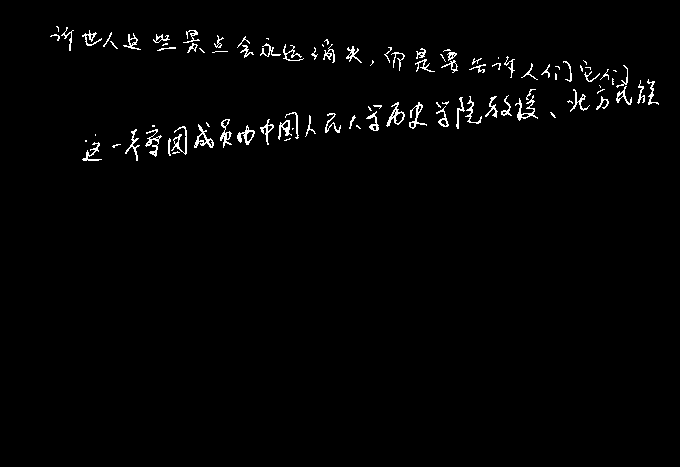 许世人这些景点会永远消失，而是要告许人们它们
这一考察团成员由中国人民大学历史学院教授、北方民族